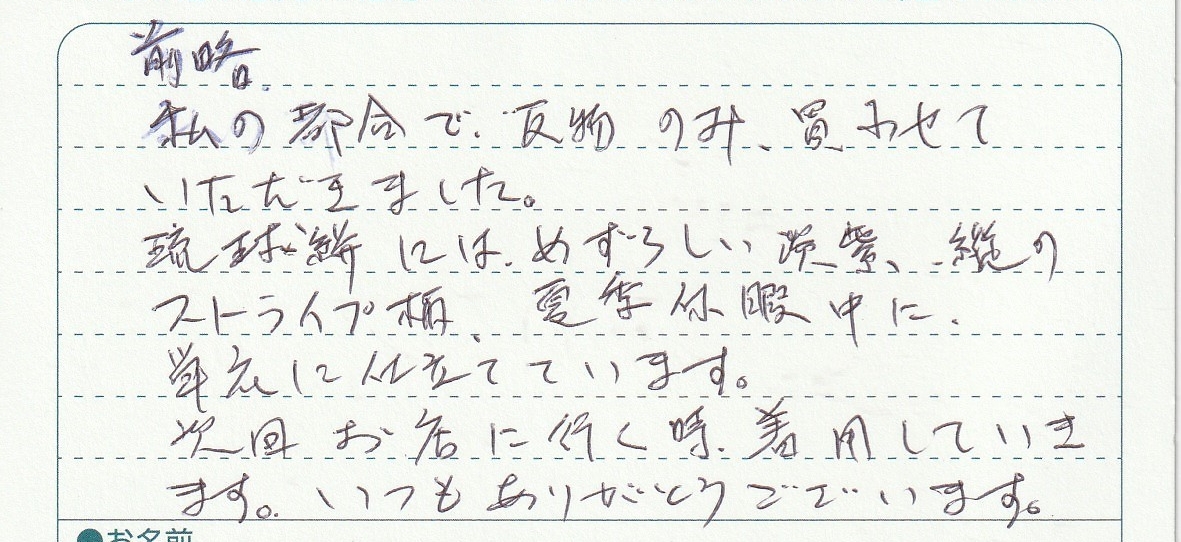 前略.
私の都合で、反物のみ、買わせて
いただきました。
琉球絣には、めずらしい淡紫、縦の
ストライプ柄、夏季休暇中に、
単衣に仕立てています。
次回お店に行く時、着用していき
ます。いつもありがとうございます。
●お名前